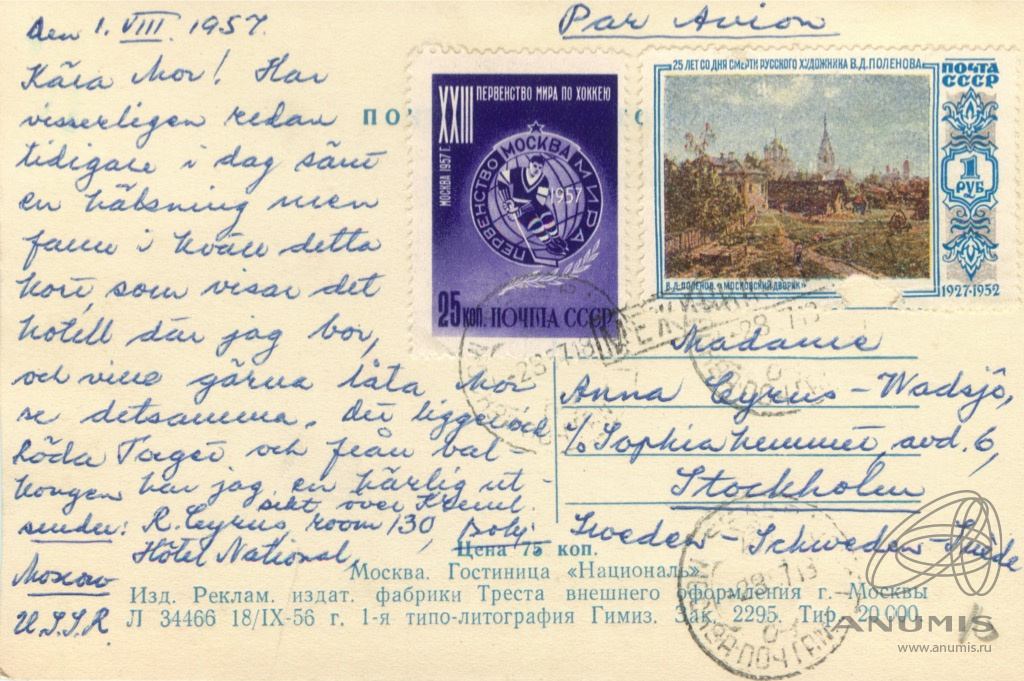 Den 1. VIII. 1957.
Par Avion
Kära Mor! Har
visserligen redan
tidigare i dag sänt
en hälsning men
fann i kväll detta
kort, som visar det
hotell där jag bor,
och ville gärna låta Mor
se detsamma. Det ligger
Röda Torget och från bal-
kongen har jag en härlig ut-
sikt över Kreml.
sender: R. Cyrus, room 130,
Hôtel National,
Moscow
U.S.S.R
XXIII ПЕРВЕНСТВО МИРА ПО ХОККЕЮ
МОСКВА 1957 Г.
МОСКВА
ПЕРВЕНСТВО МИРА
1957
25 КОП. ПОЧТА СССР
25 ЛЕТ СО ДНЯ СМЕРТИ РУССКОГО ХУДОЖНИКА В.Д.ПОЛЕНОВА
ПОЧТА
СССР
1
РУБ
В.Д.ПОЛЕНОВ. «МОСКОВСКИЙ ДВОРИК»
1927-1952
Madame
Anna Cyrus-Wadsjö,
c/o Sophiahemmet, avd. 6,
Stockholm
Sweden-Schweden-Suède
Цена 75 коп.
Москва. Гостиница «Националь».
Изд. Реклам. издат. фабрики Треста внешнего оформления г. Москвы
Л 34466 18/IX-56 г. 1-я типо-литография Гимиз. Зак. 2295. Тир. 20.000.
ANUMIS
www.anumis.ru